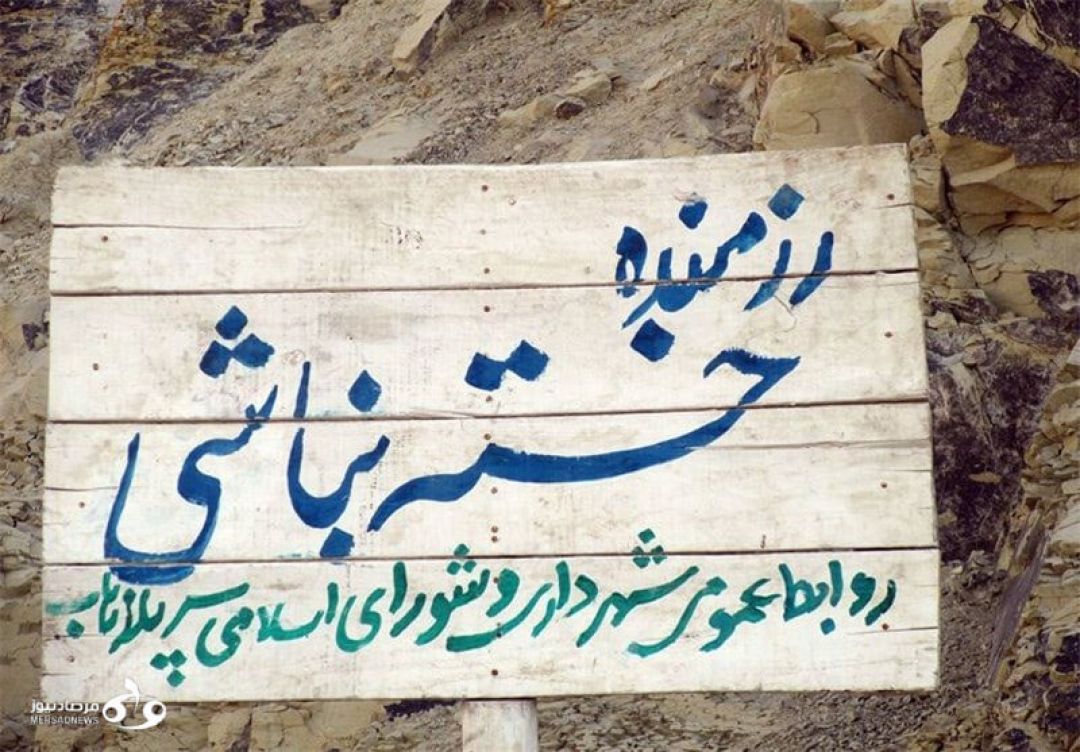 رزمنده
خسته نباشی
روابط عمومی شهرداری و شورای اسلامی سرپلذهاب
مرصادنیوز
MERSADNEWS